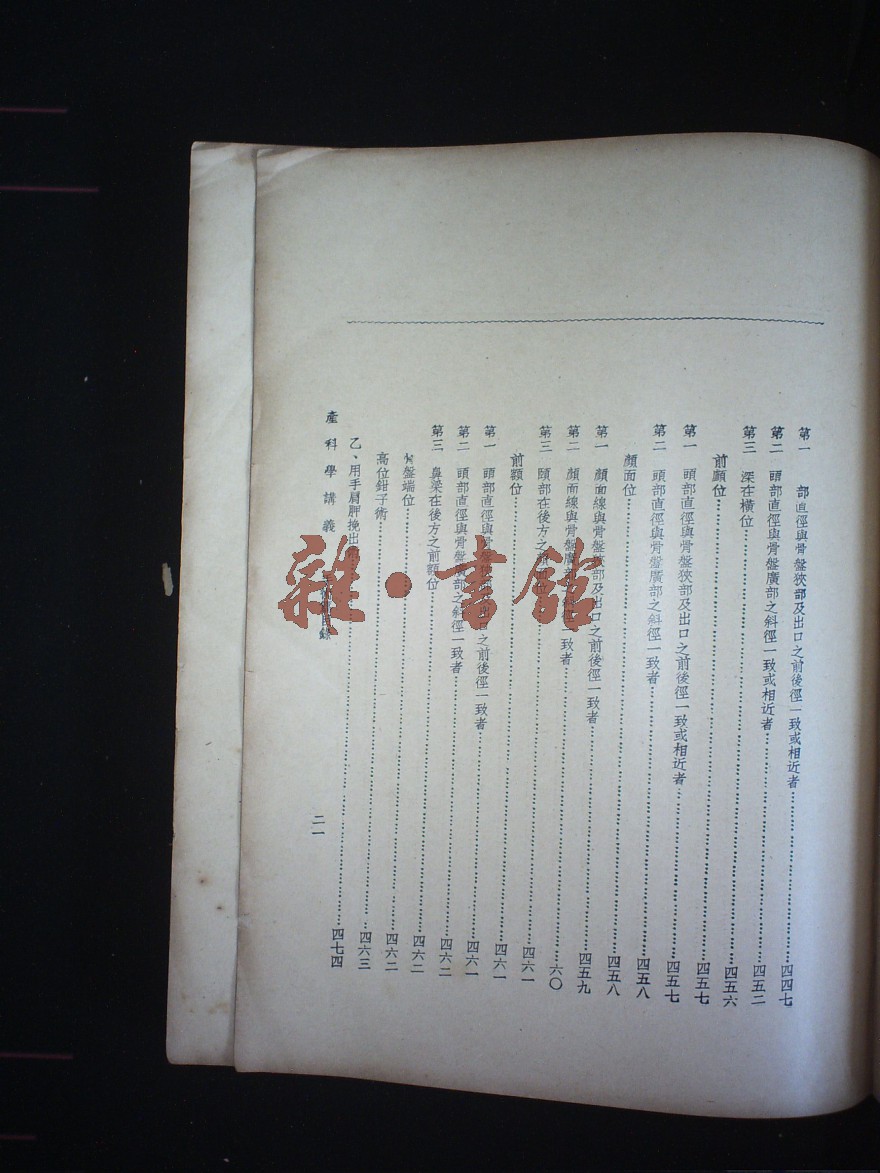 第一　部直徑與骨盤狹部及出口之前後徑一致或相近者……四四七
第二　頭部直徑與骨盤廣部之斜徑一致或相近者……四五二
第三　深在橫位……四五六
前顱位……四五七
第一　頭部直徑與骨盤狹部及出口之前後徑一致或相近者……四五七
第二　頭部直徑與骨盤廣部之斜徑一致者……四五八
顏面位……四五八
第一　顏面線與骨盤狹部及出口之前後徑一致者……四五九
第二　顏面線與骨盤廣部之斜徑一致者……六〇
第三　頤部在後方之顏面位……四六一
前額位……四六一
第一　頭部直徑與骨盤狹部及出口之前後徑一致者……四六一
第二　頭部直徑與骨盤廣部之斜徑一致者……四六二
第三　鼻梁在後方之前額位……四六二
骨盤端位……四六二
高位鉗子術……四六三
乙、用手肩胛挽出……四七四
產科學講義　目錄　二一
雜·書館